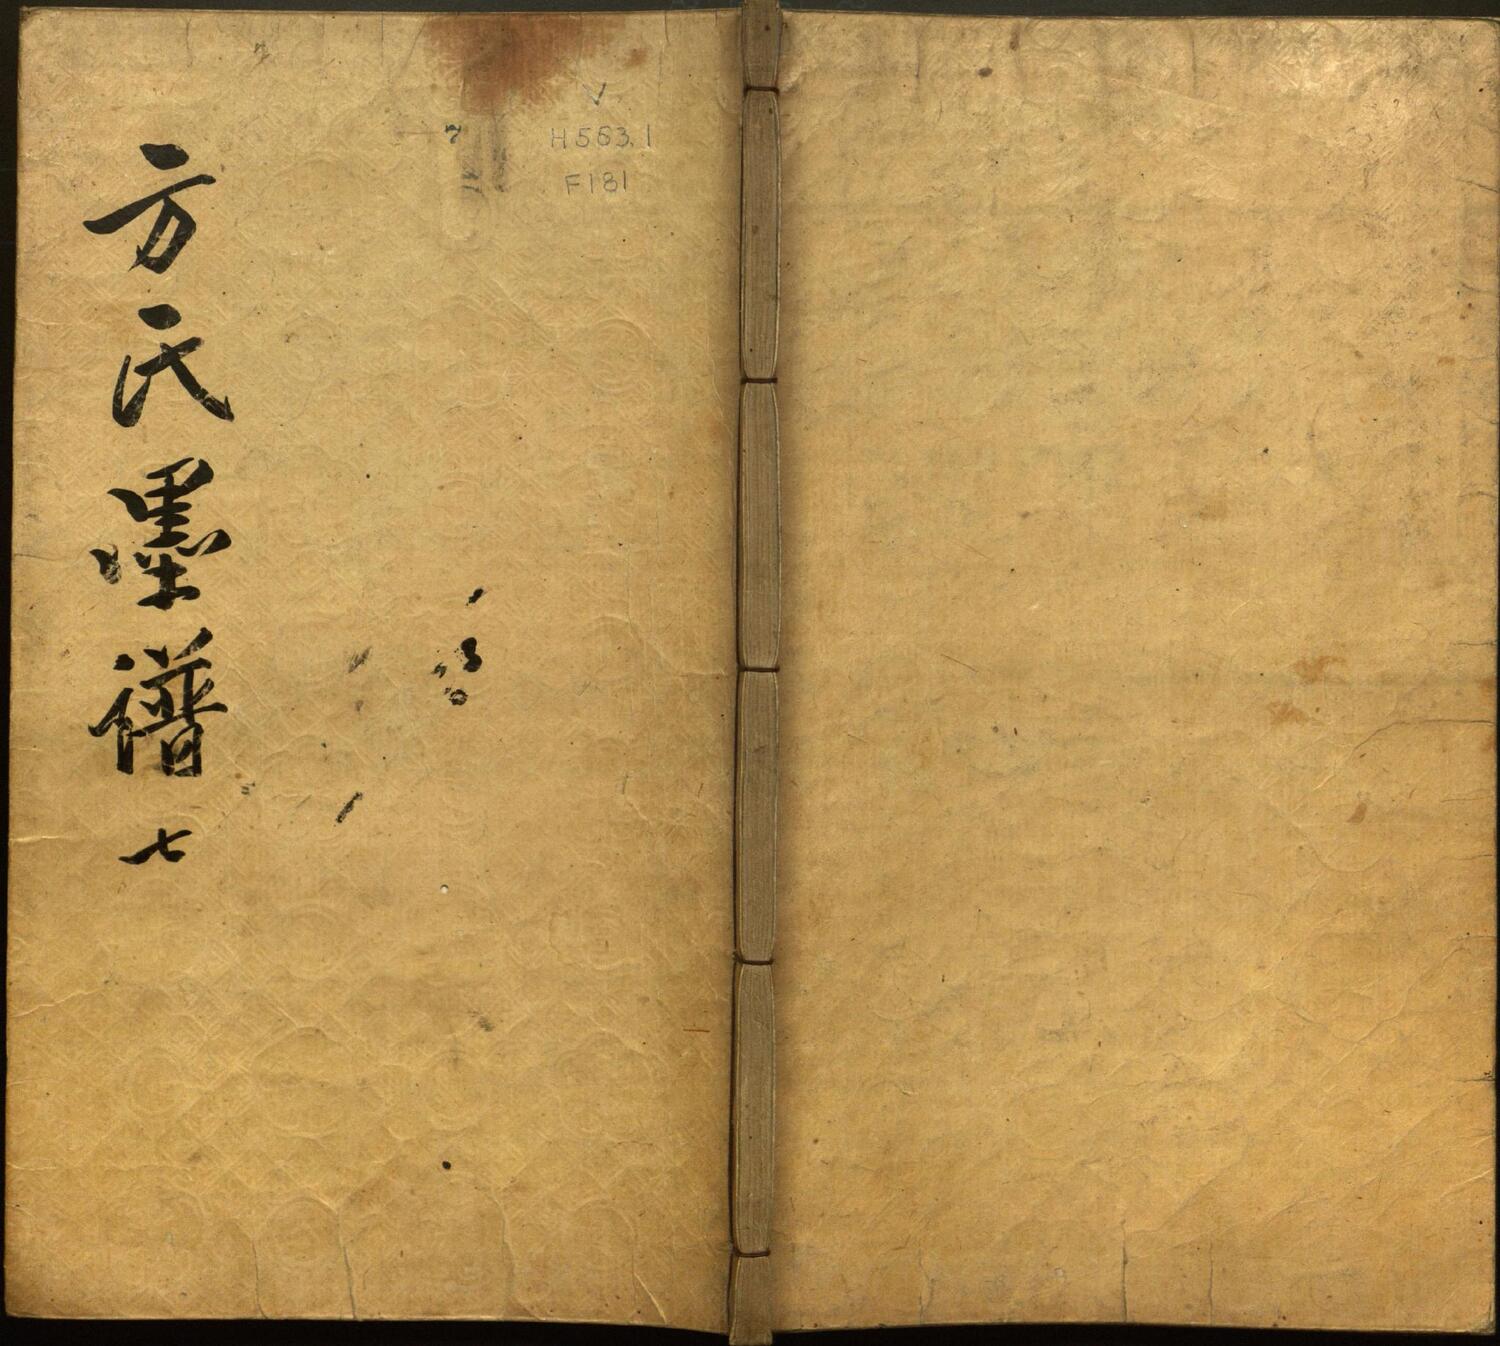 方氏墨譜 七
7
V
H563.1
F181